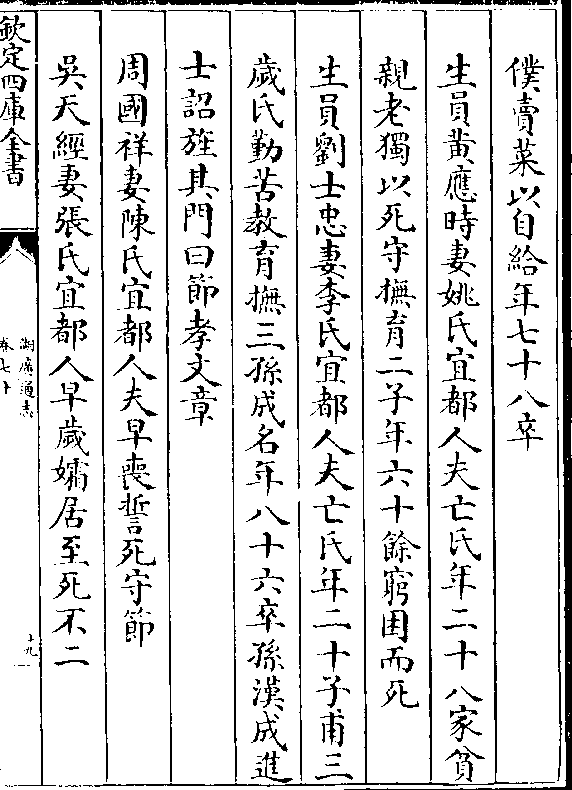 僕賣菜以自給年七十八卒
生員黄應時妻姚氏宜都人夫亡氏年二十八家貧
親老獨以死守撫育二子年六十餘窮困而死
生員劉士忠妻李氏宜都人夫亡氏年二十子甫三
歲氏勤苦教育撫三孫成名年八十六卒孫漢成進
士詔旌其門曰節孝文章
周國祥妻陳氏宜都人夫早喪誓死守節
吳天經妻張氏宜都人早歲孀居至死不二
欽定四庫全書
湖廣通志
卷七十
十九